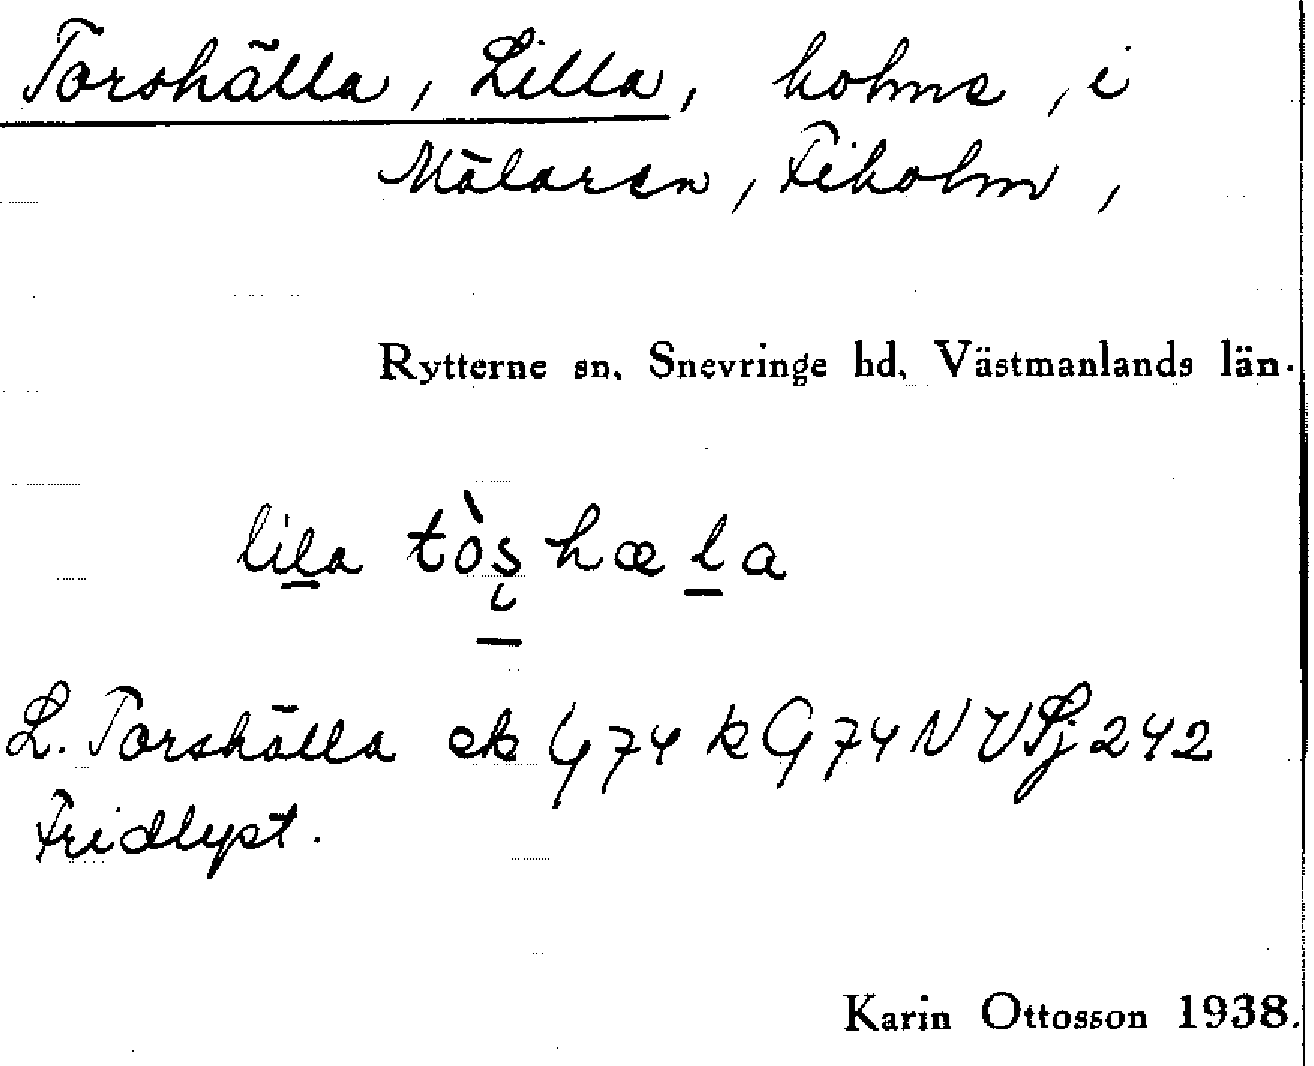 Torshälla, Lilla, holme, i
Mälaren, Fiholm,
Rytterne sn. Snevringe hd, Västmanlands län.
lila tòs̨hæla
L. Torshälla ek G74 k G74 NV Sj 242
Fridlyst.
Karin Ottosson 1938.